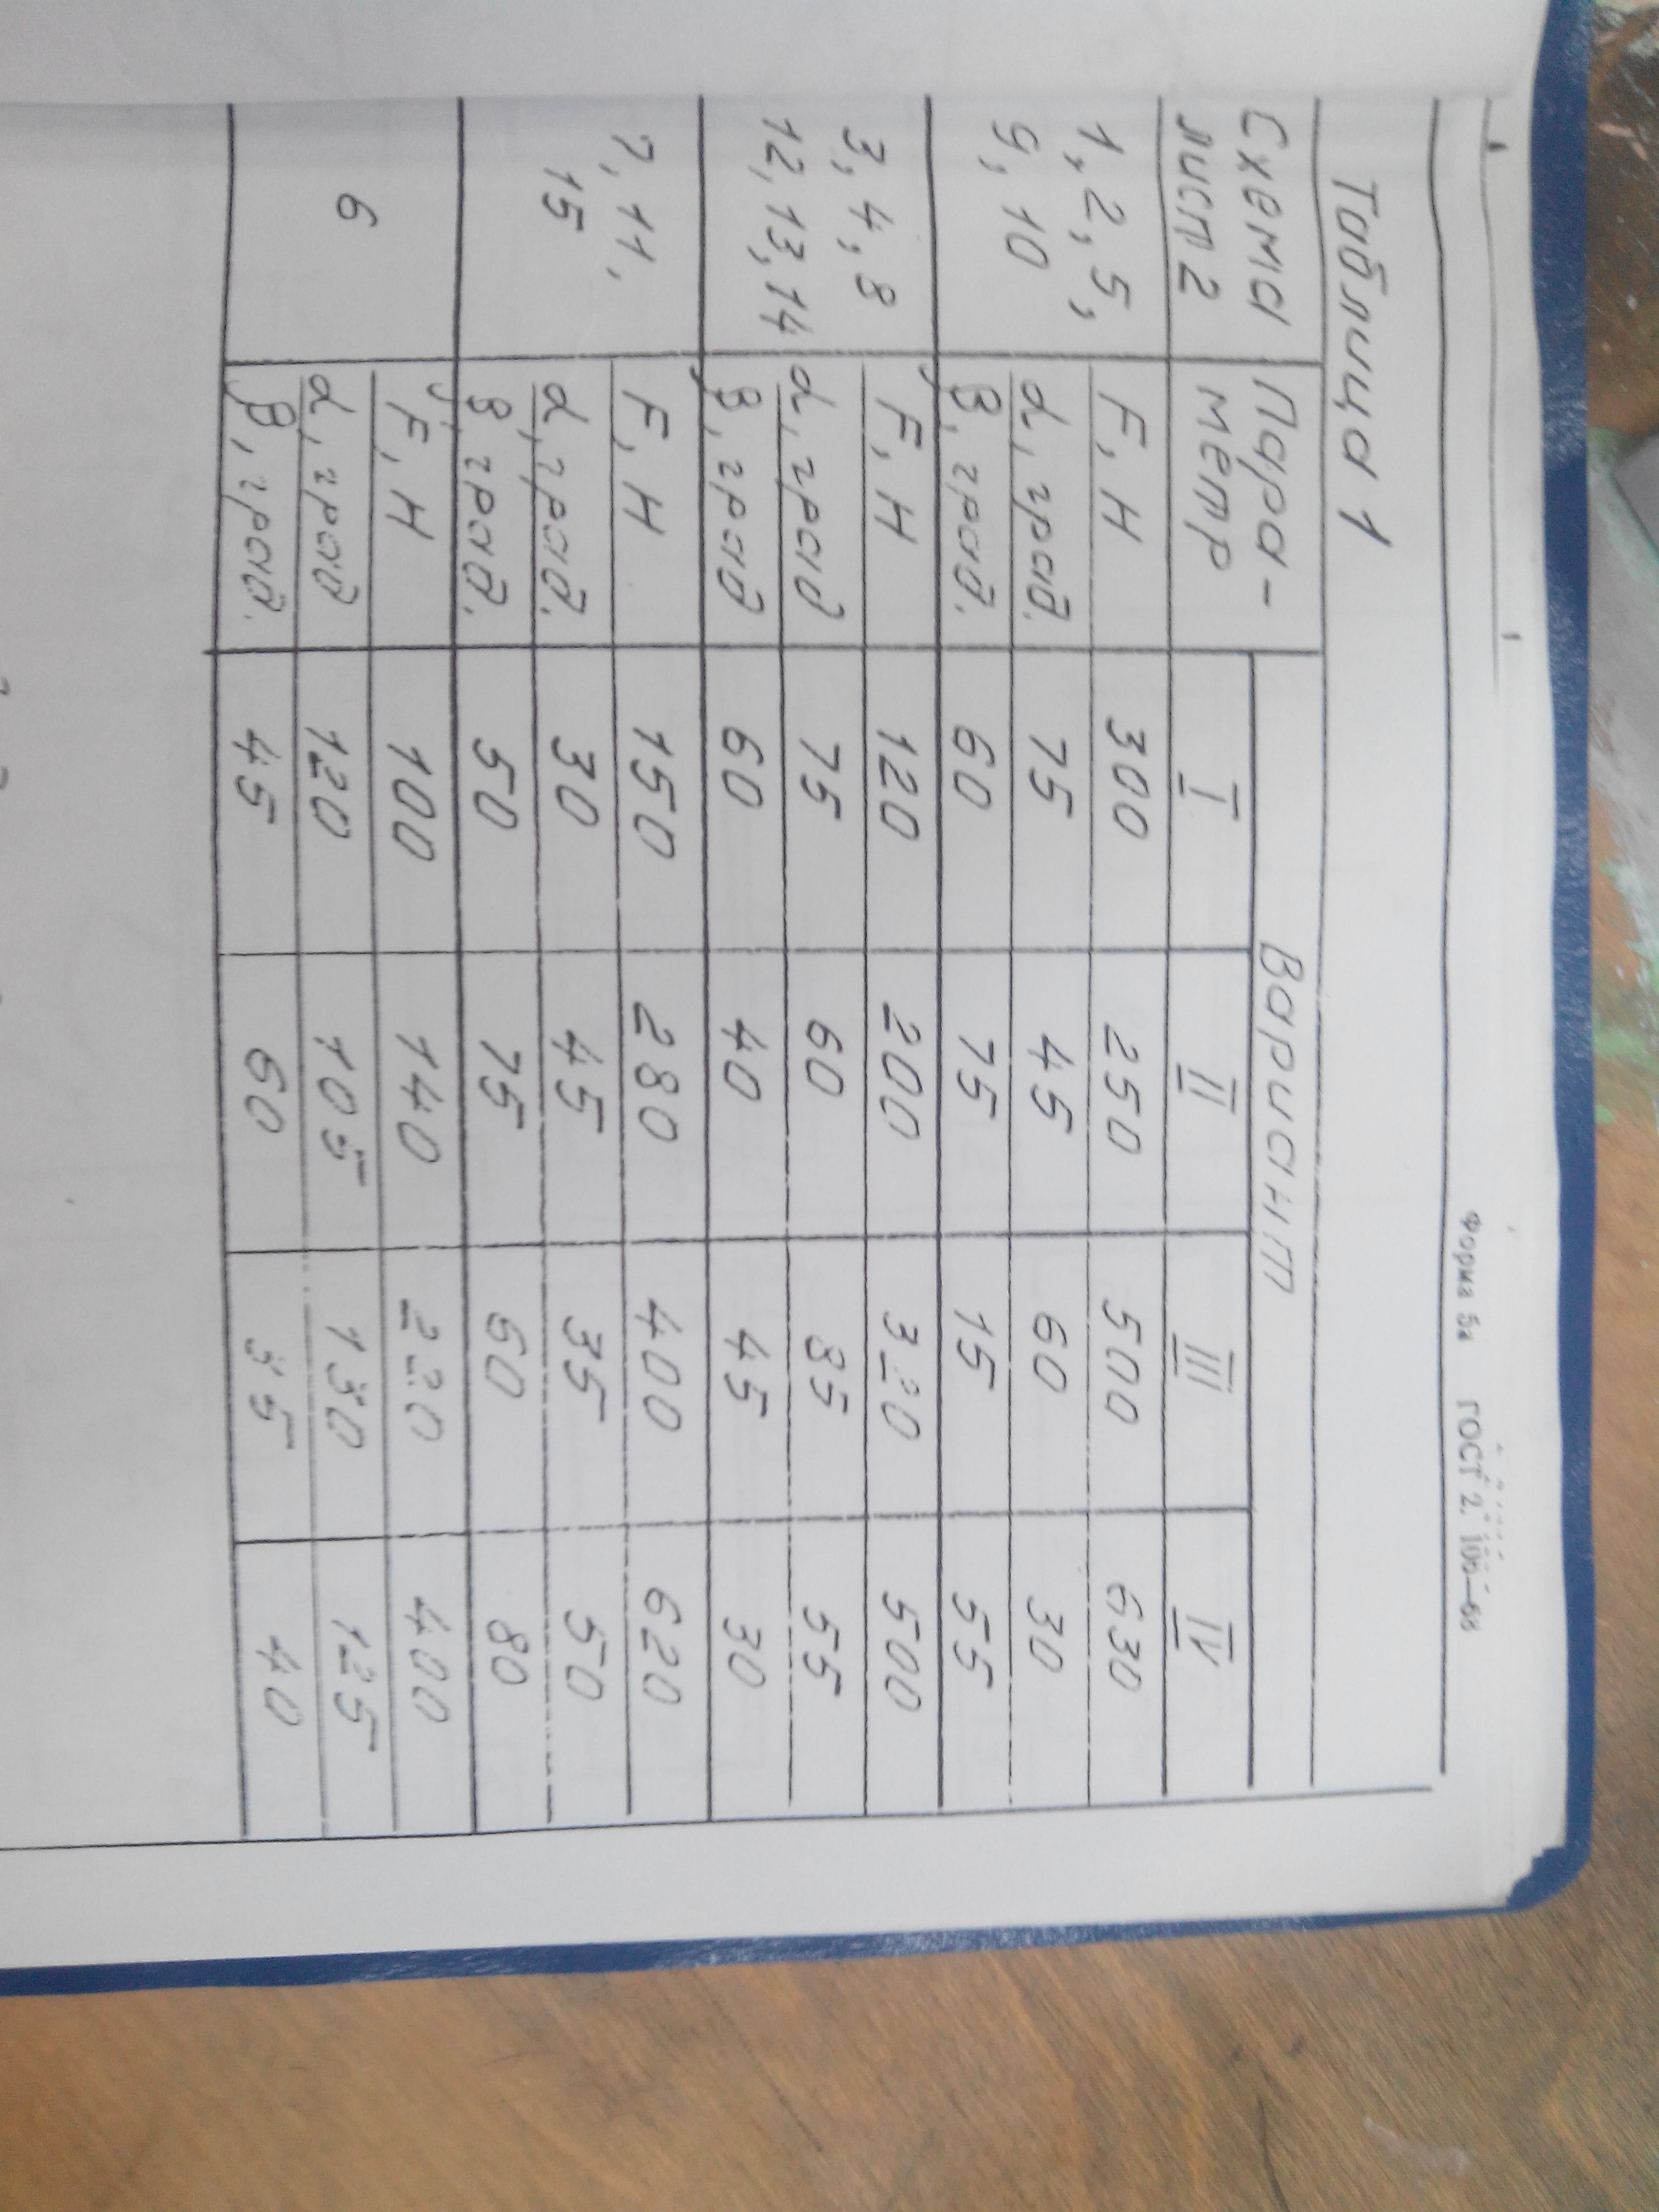 Форма 5а ГОСТ 2.106—68
Таблица 1
Схема Пара- Вариант
лист 2 метр I II III IV
1, 2, 5, F, Н 300 250 500 630
9, 10 α, град. 75 45 60 30
β, град. 60 75 15 55
3, 4, 8 F, Н 120 200 320 500
12, 13, 14 α, град 75 60 35 55
β, град 60 40 45 30
7, 11, F, Н 150 280 400 620
15 α, град. 30 45 35 50
β, град. 50 75 60 80
6 F, Н 100 140 220 400
α, град 120 105 130 125
β, град. 45 60 35 40